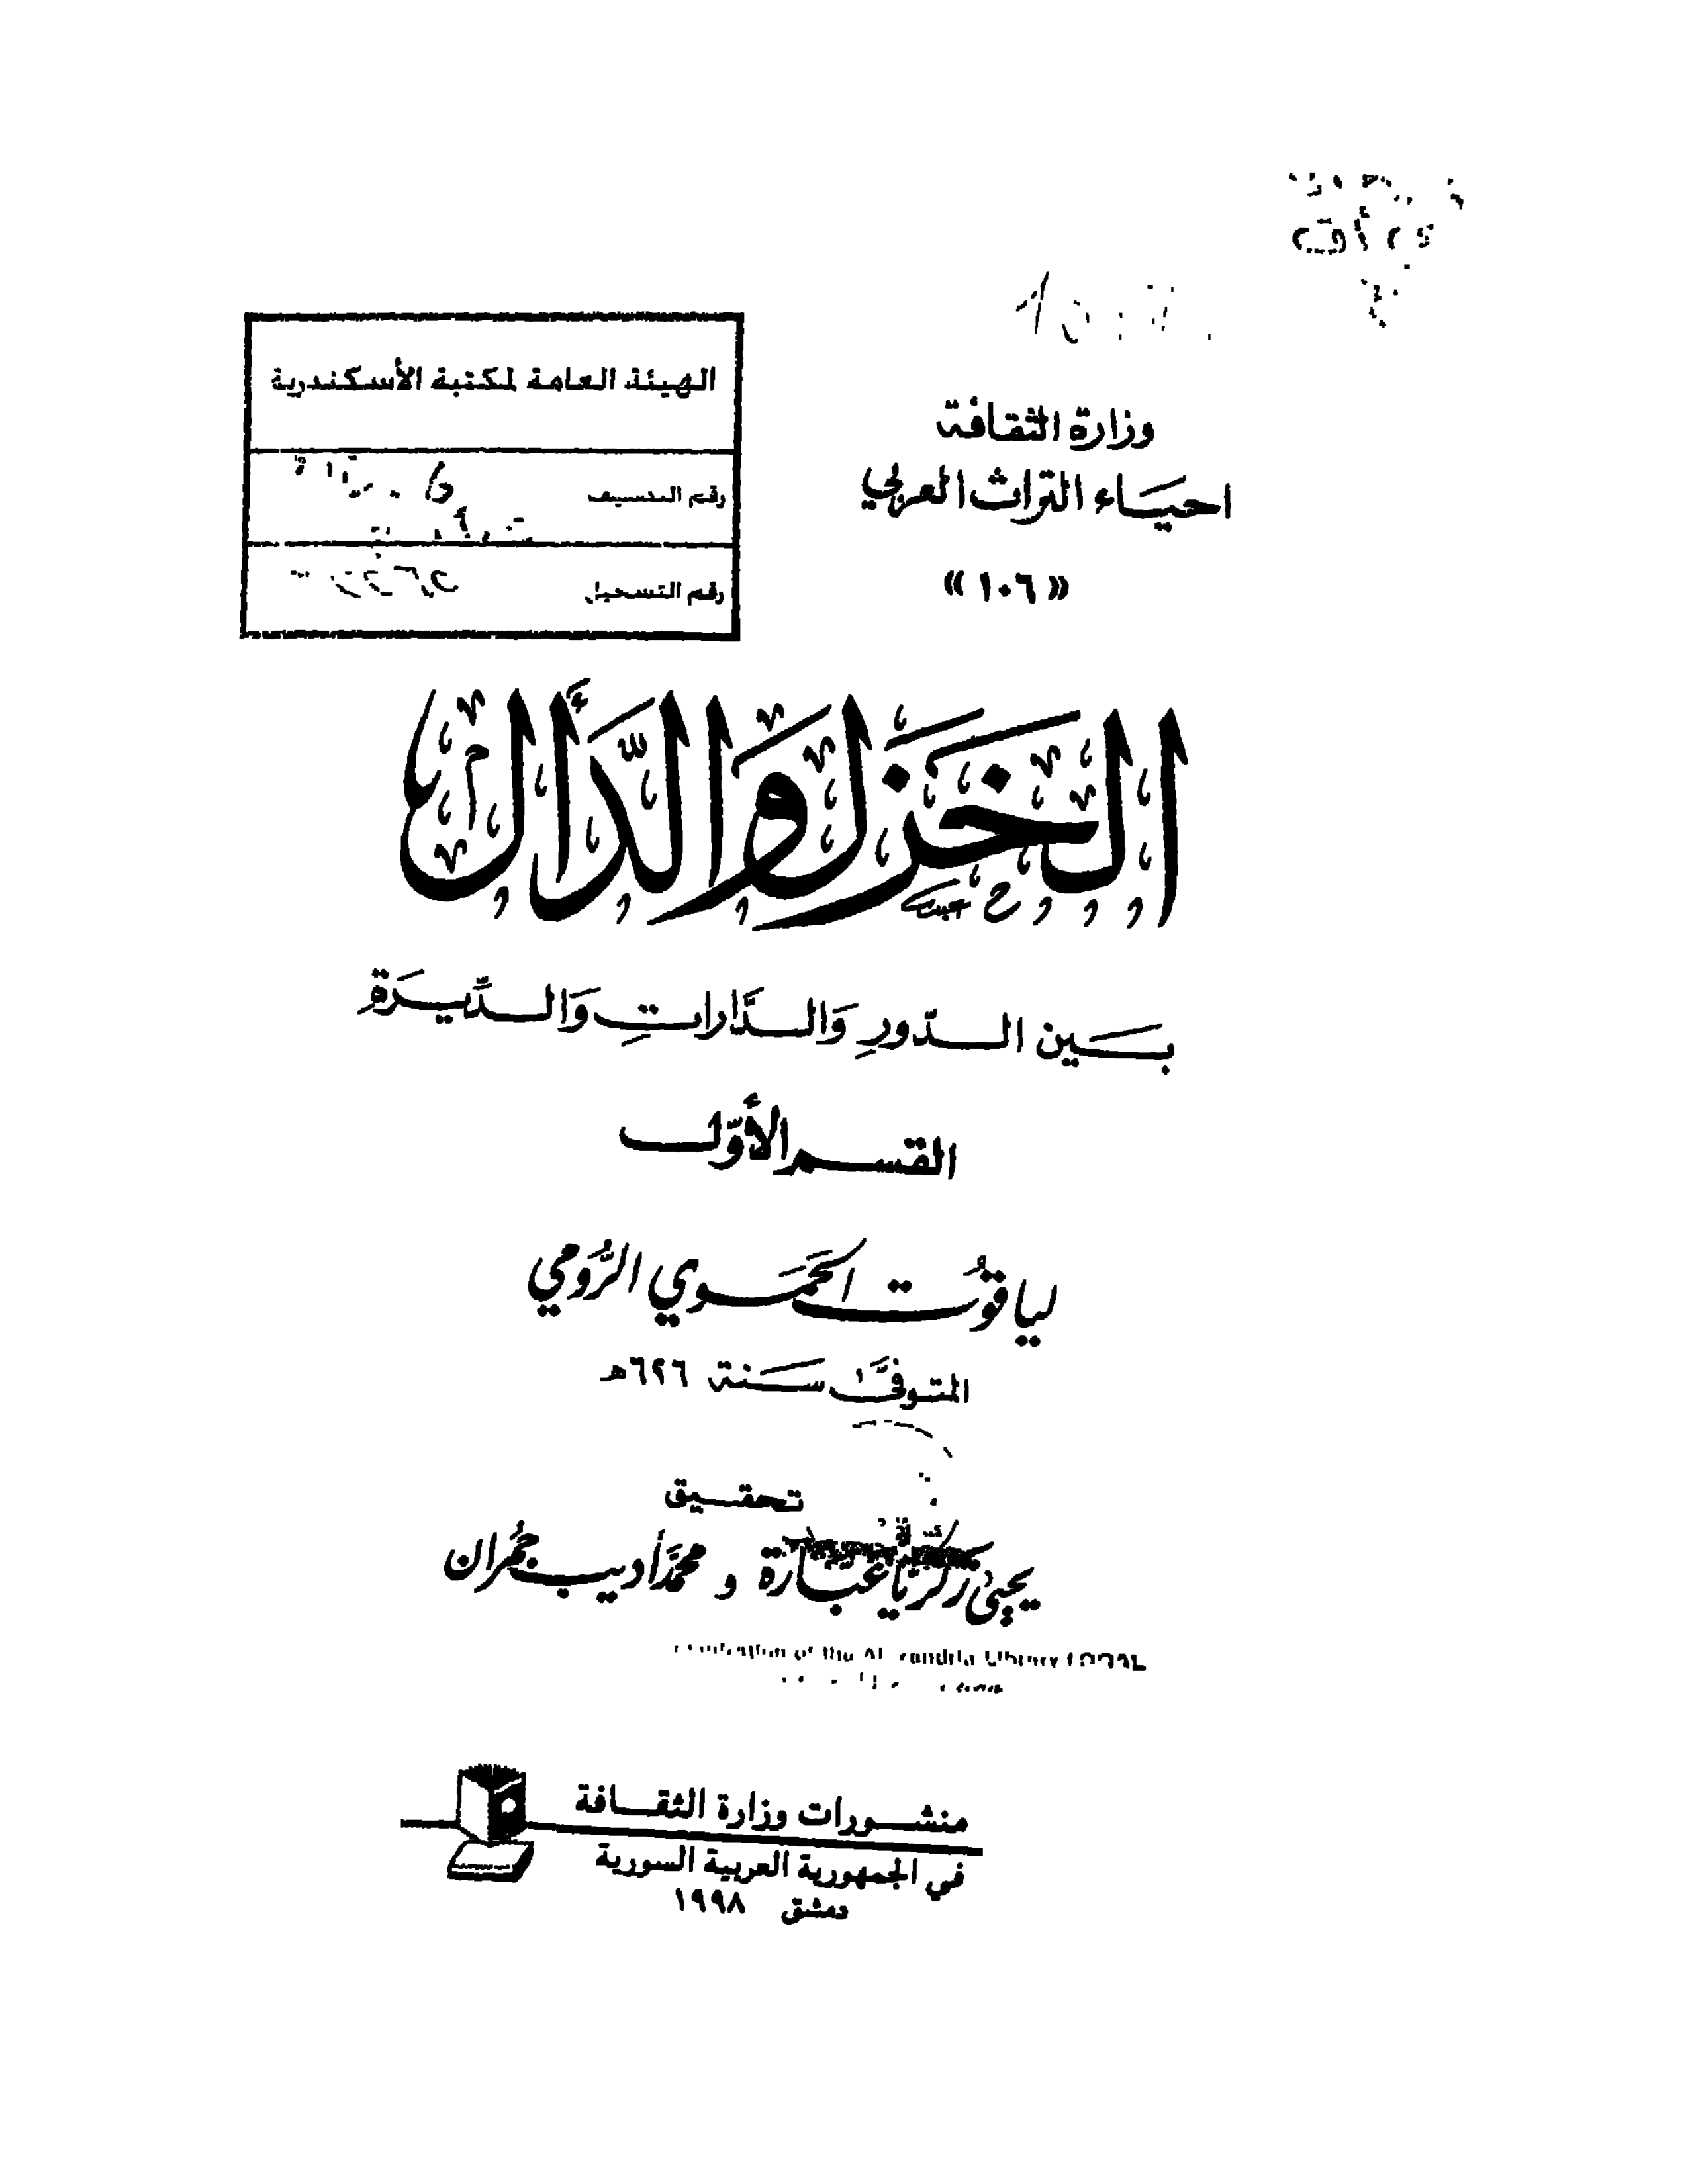 وزارة الثقافة
احياء التراث العربي
«١٠٦»
الهيئة العامة لمكتبة الأسكندرية
رقم التصنيف
رقم التسجيل
الخَزَل وَالدَّأَل
بَين الدّورِ وَالدَّاراتِ وَالدِّيَرَةِ
القسم الأوّل
لياقوُت الحَمَوي الرُّومي
المتوفَّى سَنة ٦٢٦هـ
تحقيق
يحيىٰ زكريّا عبّارة و محمّد أديب جمُران
of the Al andria Library
منشورات وزارة الثقافة
في الجمهورية العربية السورية
دمشق ١٩٩٨